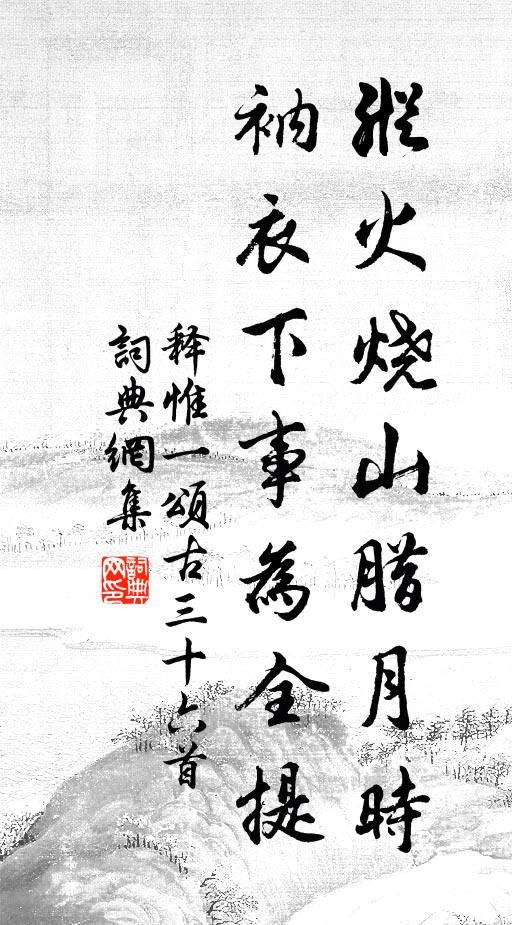 縱火燒山腊月時
衲衣下事為全提
释惟一頌古三十六首
詞典網集
詞典网印